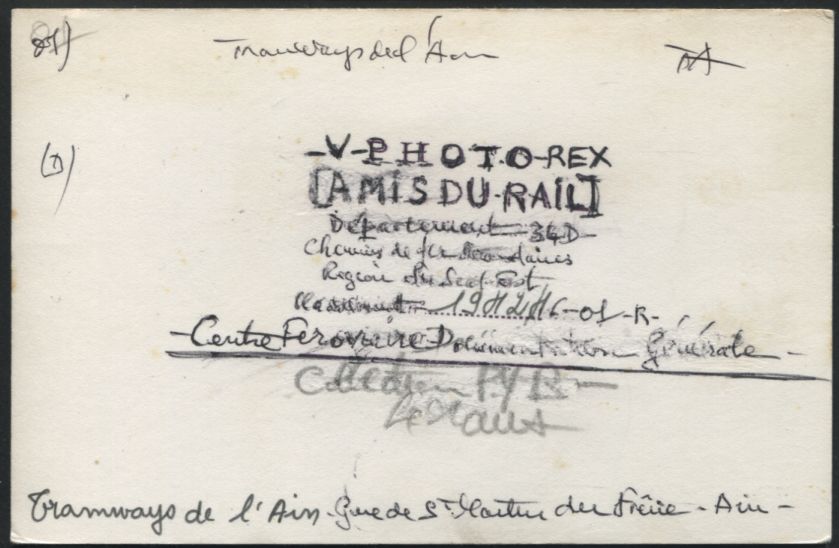 Tramways de l'Ain
-V-PHOTO-REX
[AMIS DU RAIL]
Département 34D-
Chemins de fer Secondaires
Region du Sud-Est
-01-R-
-Centre Ferovière Documentation Générale-
Collection
Tramways de l'Ain-Gare de St Martin du Frêne-Ain-